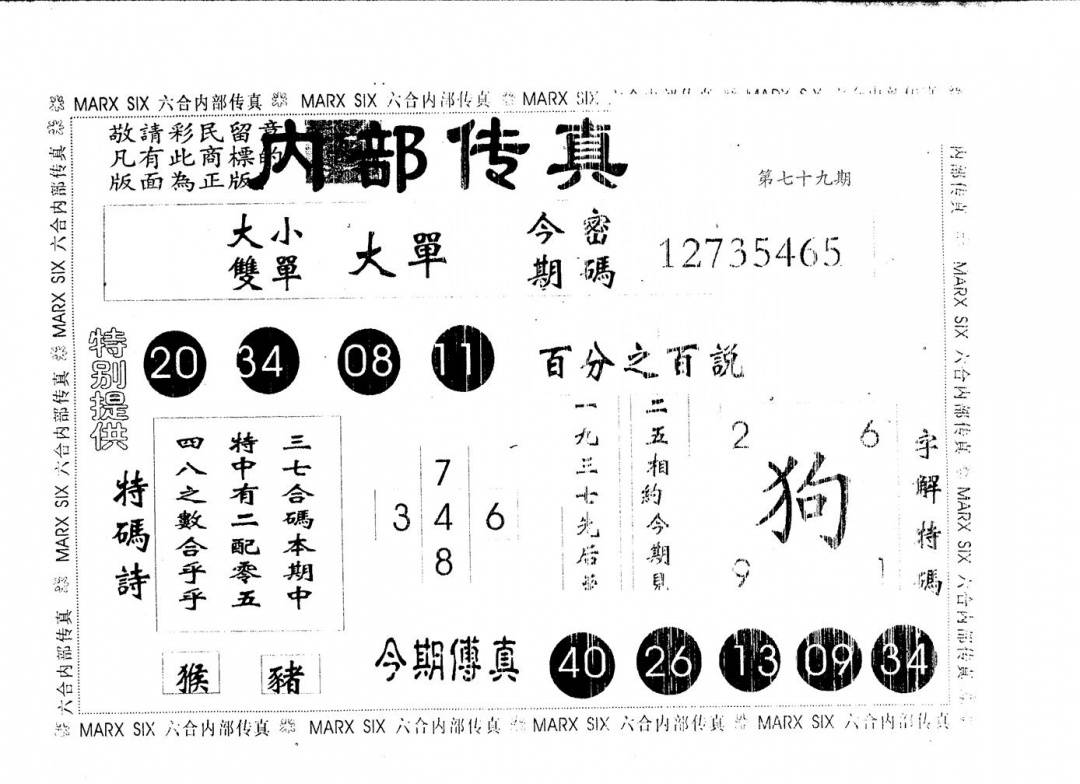 MARX SIX 六合内部传真 MARX SIX 六合内部传真 MARX SIX
敬請彩民留意
凡有此商標的
版面為正版
内部传真
第七十九期
大小
雙單
大單
今密
期碼
12735465
特别提供
20 34 08 11
百分之百説
特碼詩
三七合碼本期中
特中有二配零五
四八之數合乎乎
7
3 4 6
8
二五相約今期見
一九三七先后
2 6
狗
9 1
字解特碼
猴 豬
今期傳真
40 26 13 09 34
六合内部传真 MARX SIX 六合内部传真 MARX SIX 六合内部传真
内部传真 MARX SIX 六合内部传真 MARX SIX 六合内部传真
MARX SIX 六合内部传真 MARX SIX 六合内部传真 MARX SIX 六合内部传真 MARX SIX 六合内部传真